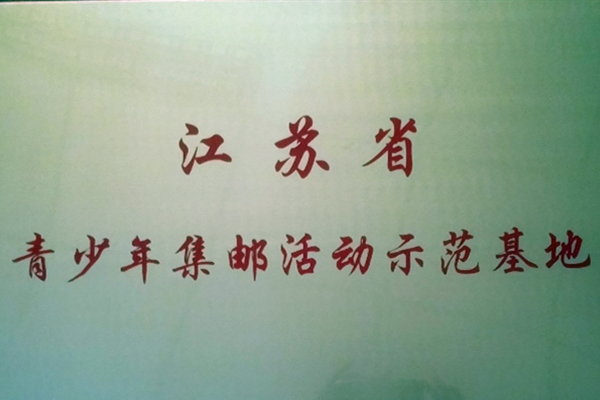 江苏省
青少年集邮活动示范基地